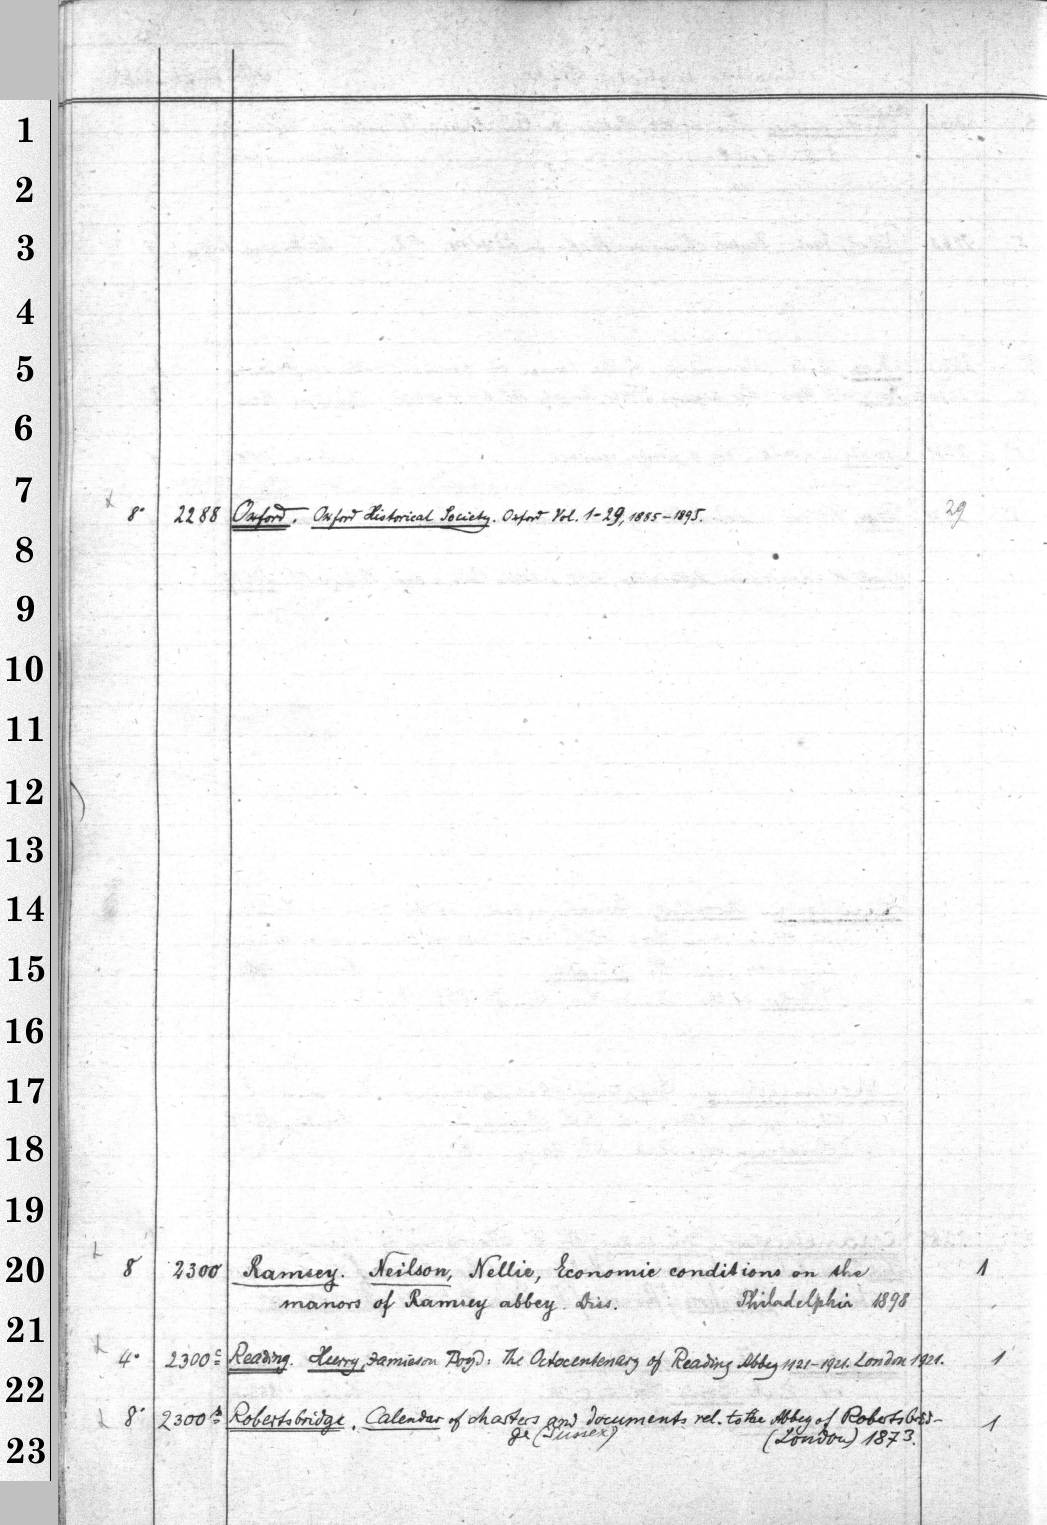 1
2
3
4
5
6
7
8° 2288 Oxford. Oxford Historical Society. Oxford Vol. 1-29, 1885-1895. 29
8
9
10
11
12
13
14
15
16
17
18
19
20
8° 2300 Ramsey. Neilson, Nellie, Economic conditions on the 1
manors of Ramsey abbey. Diss. Philadelphia 1898
21
4° 2300c Reading. Hurry, Jamieson Boyd: The Octocentenary of Reading Abbey 1121-1921. London 1921. 1
22
8° 2300 Robertsbridge. Calendar of charters and documents rel. to the Abbey of Robertsbrid- 1
ge (Sussex) (London) 1873.
23